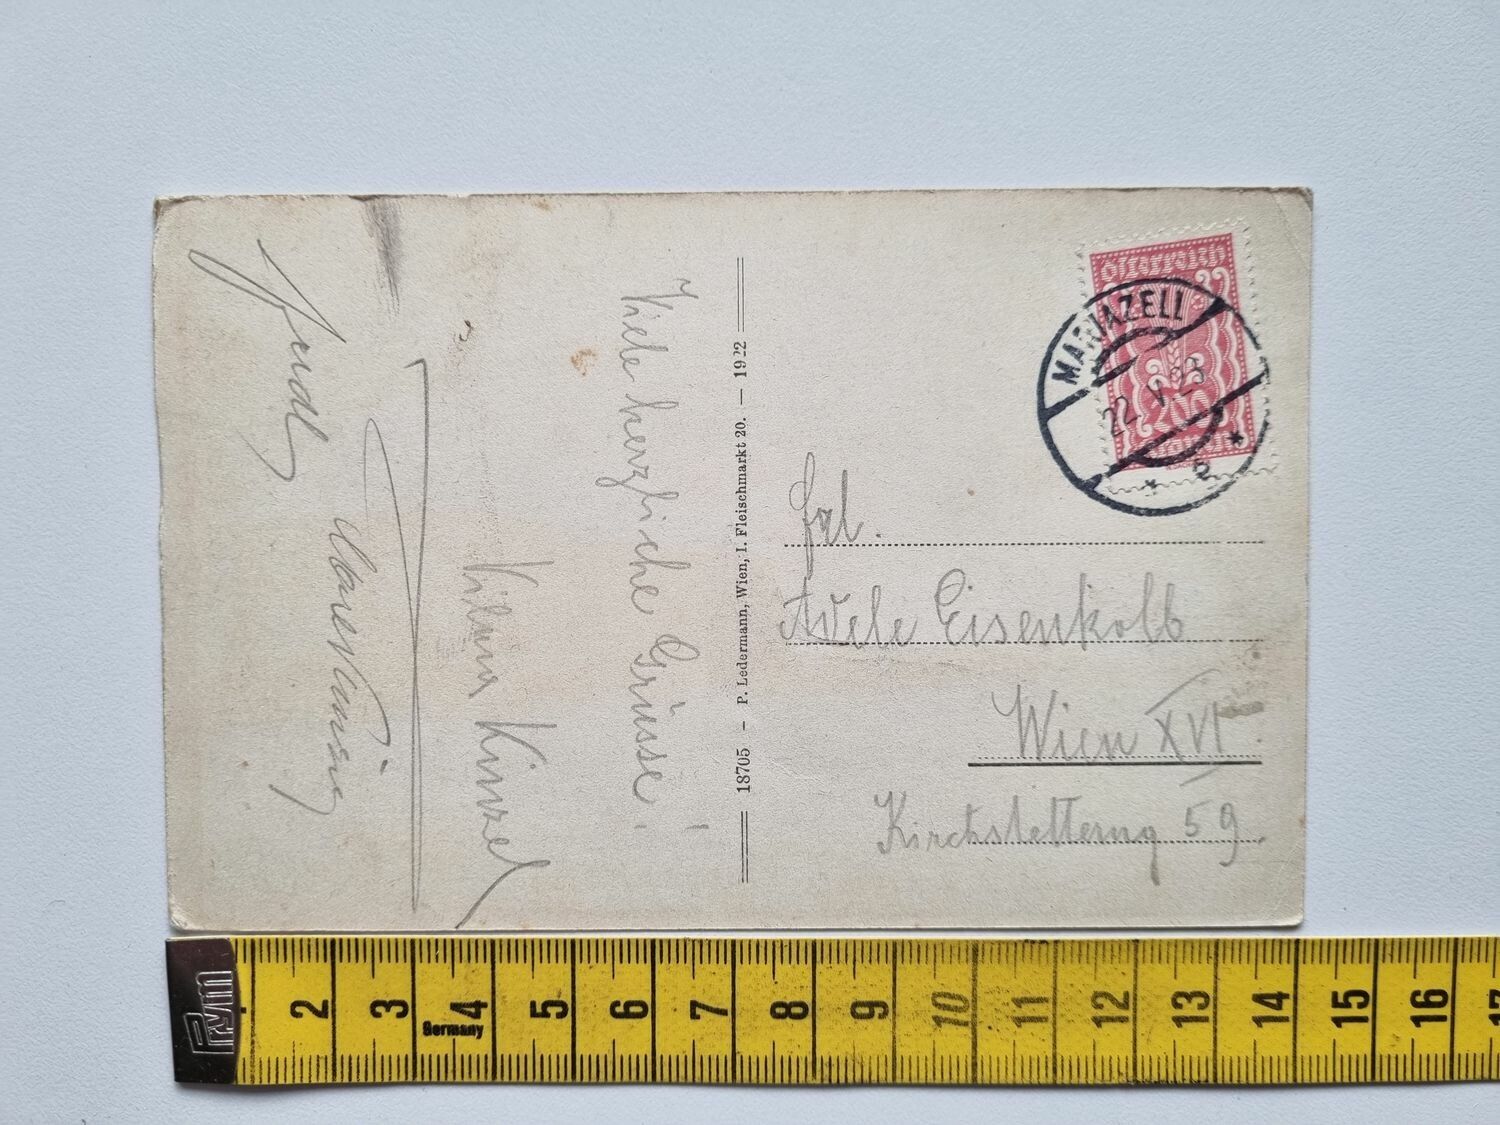 Viele herzliche Grüsse!
Vilma Künzel
18705 – P. Ledermann, Wien, I. Fleischmarkt 20. – 1922
Österreich
200
Kronen
MARIAZELL
22 V 23
Frl.
Adele Eisenkolb
Wien XVI.
Kirchstetterng 59.
Prym
2 3 4 5 6 7 8 9 10 11 12 13 14 15 16 17
Germany